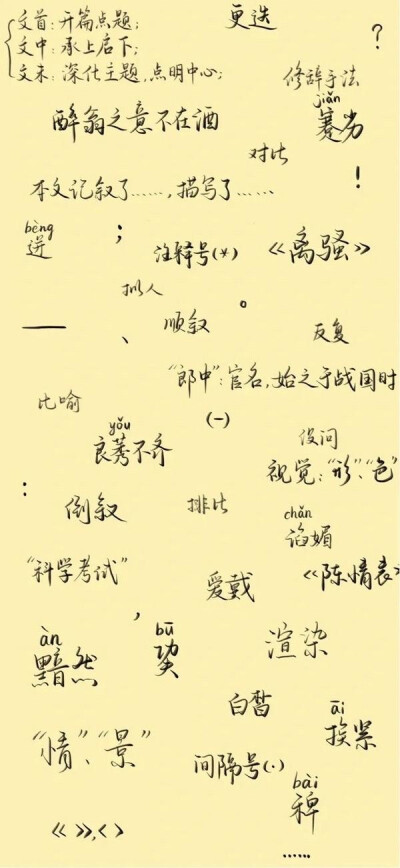 文首:开篇点题;
文中:承上启下;
文末:深化主题,点明中心;
更迭
?
修辞手法
jiǎn
蹇劣
醉翁之意不在酒
对比
!
本文记叙了……,描写了……
bèng
迸
;
注释号(*)
《离骚》
拟人
。
——
、
顺叙
反复
"郎中":官名,始之于战国时
比喻
(一)
yǒu
良莠不齐
设问
视觉:"形"、"色"
:
倒叙
排比
chǎn
谄媚
"科学考试"
爱戴
《陈情表》
,
àn
黯然
bū
巭
渲染
白皙
āi
挨紧
"情"、"景"
间隔号(·)
bài
稗
《 》,〈 〉
……